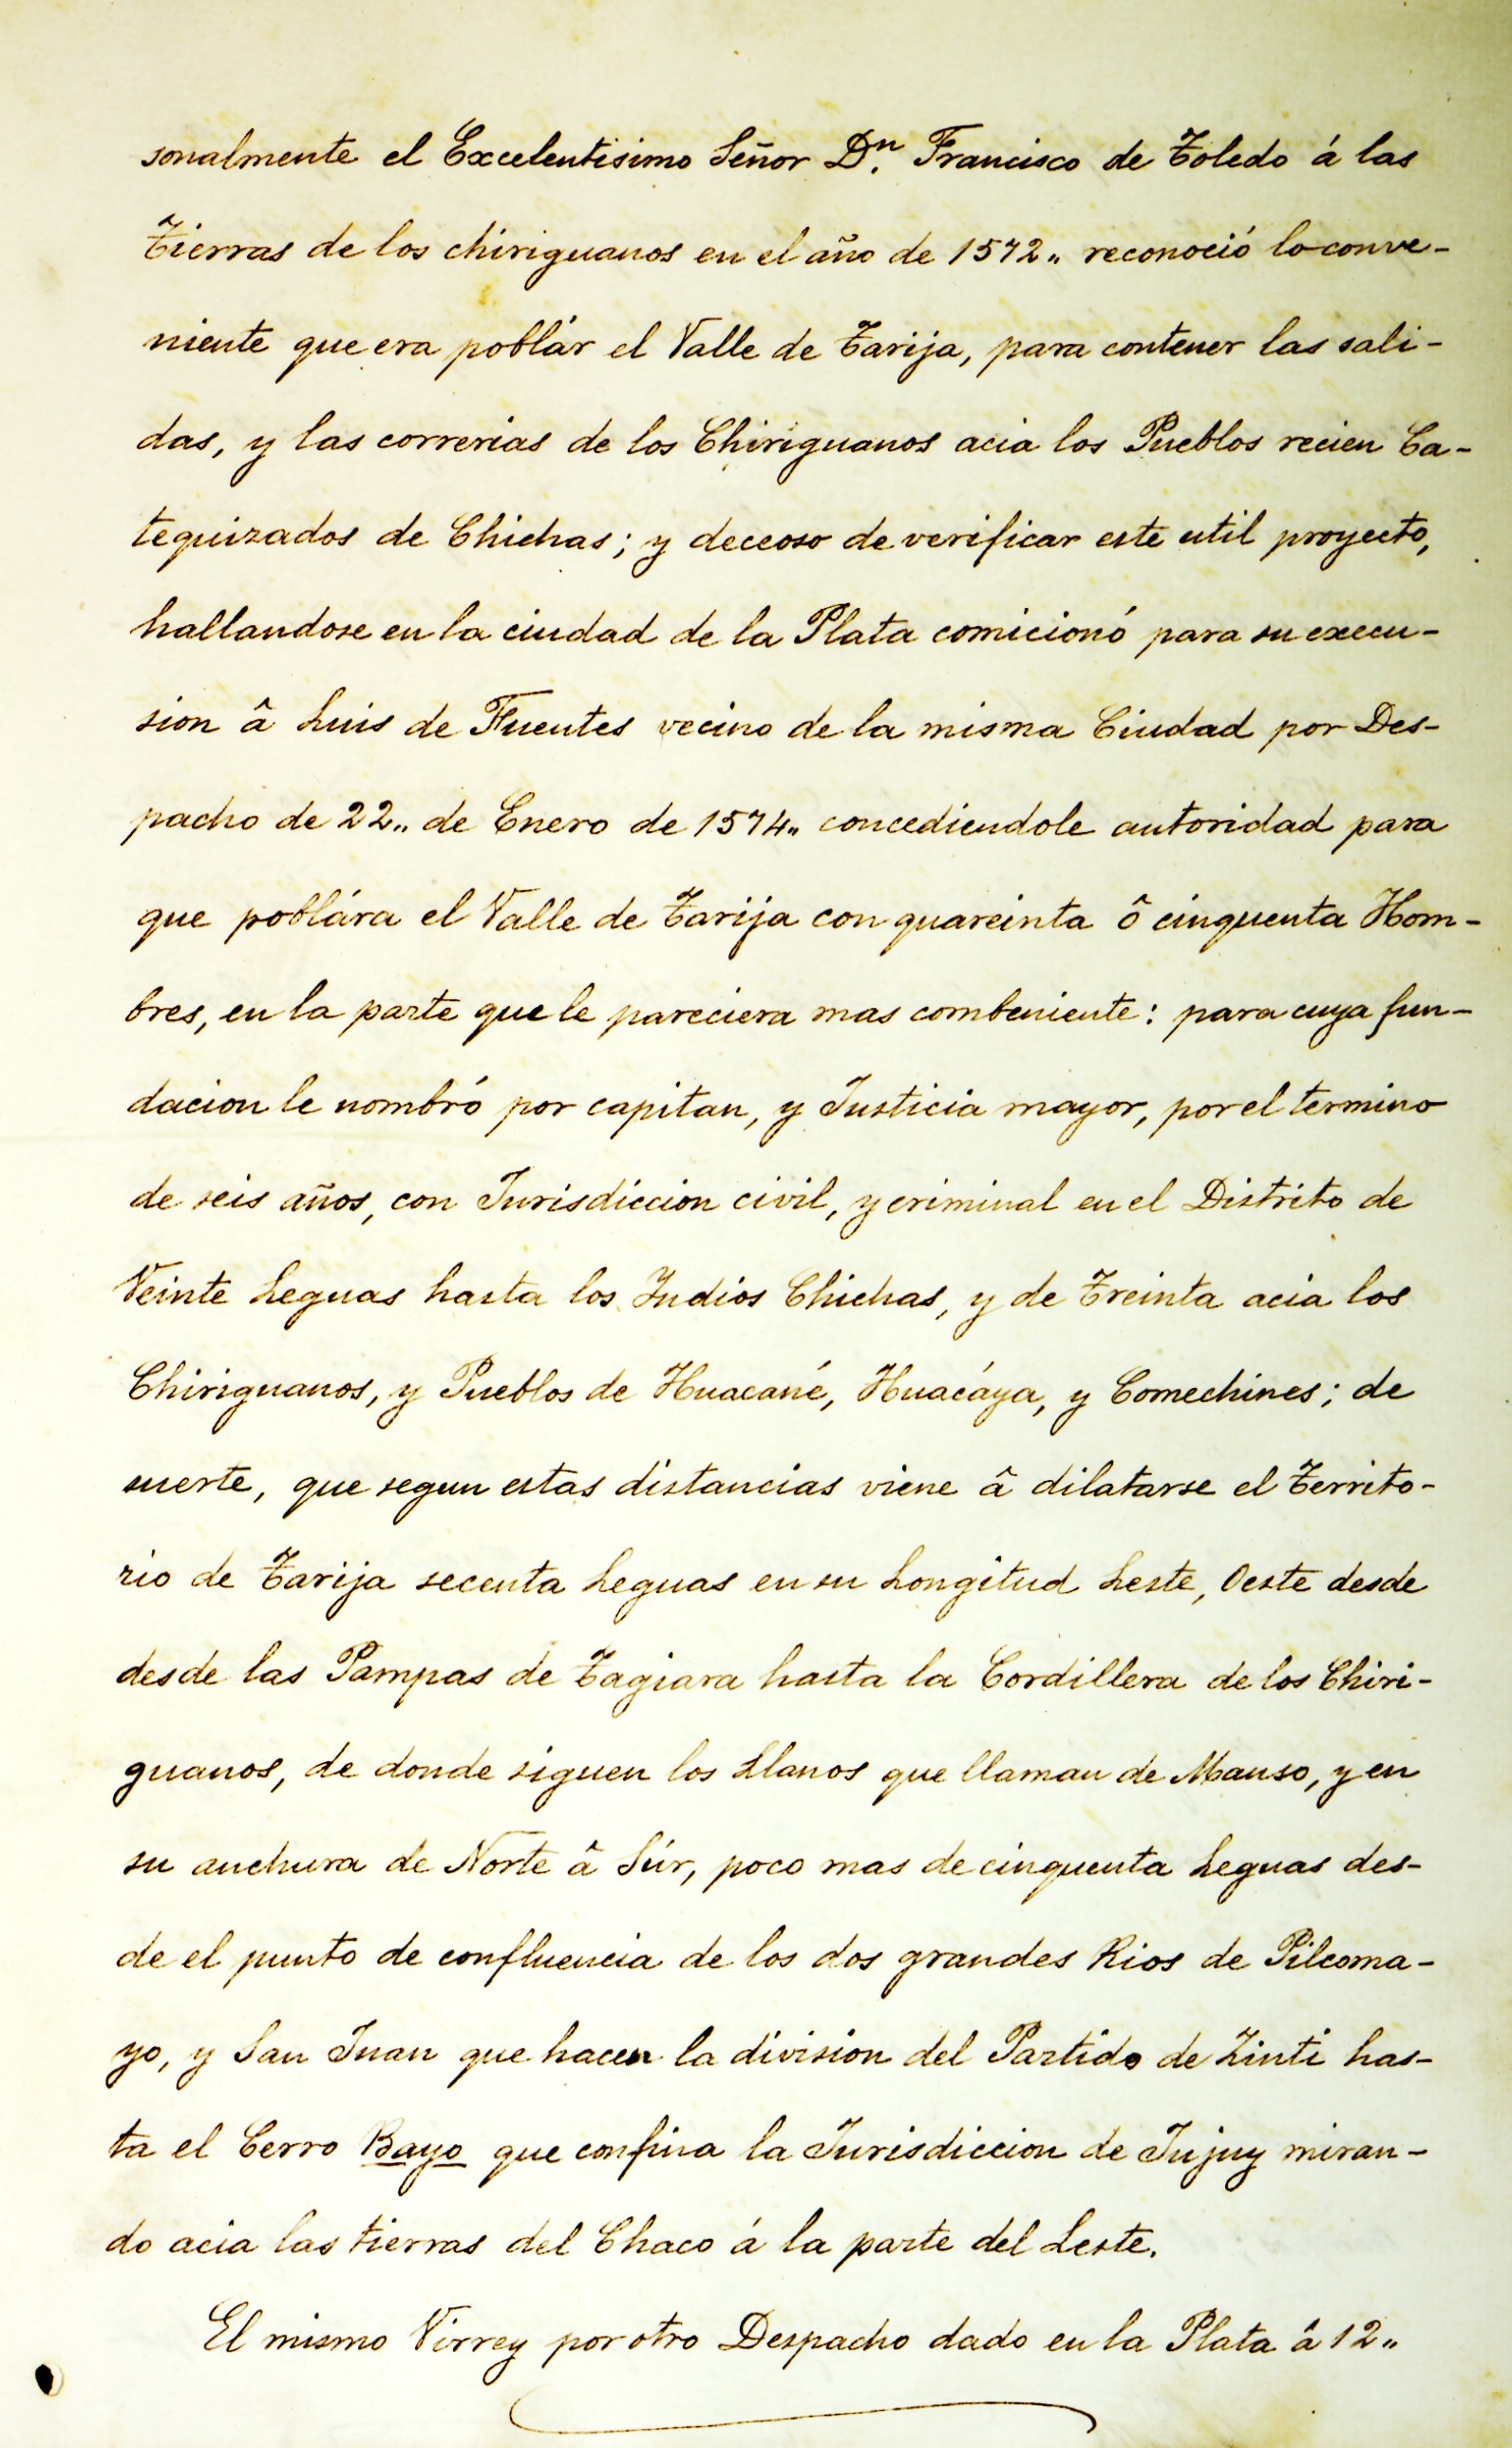 sonalmente el Excelentisimo Señor Dn. Francisco de Toledo á las
Tierras de los chiriguanos en el año de 1572„ reconoció lo conve-
niente que era poblár el Valle de Tarija, para contener las sali-
das, y las correrias de los Chiriguanos acia los Pueblos recien Ca-
tequizados de Chichas; y deceoso de verificar este util proyecto,
hallandose en la ciudad de la Plata comicionó para su execu-
sion â Luis de Fuentes vecino de la misma Ciudad por Des-
pacho de 22„ de Enero de 1574„ concediendole autoridad para
que poblára el Valle de Tarija con quareinta ô cinquenta Hom-
bres, en la parte que le pareciera mas combeniente: para cuya fun-
dacion le nombró por capitan, y Justicia mayor, por el termino
de seis años, con Jurisdiccion civil, y criminal en el Distrito de
Veinte Leguas hasta los Indios Chichas, y de Treinta acia los
Chiriguanos, y Pueblos de Huacané, Huacáya, y Comechines; de
suerte, que segun estas distancias viene â dilatarse el Territo-
rio de Tarija secenta Leguas en su Longitud Leste, Oeste desde
desde las Pampas de Tagiara hasta la Cordillera de los Chiri-
guanos, de donde siguen los Llanos que llaman de Manso, y en
su anchura de Norte â Súr, poco mas de cinquenta Leguas des-
de el punto de confluencia de los dos grandes Rios de Pilcoma-
yo, y San Juan que hacen la division del Partido de Zinti has-
ta el Cerro Bayo que confina la Jurisdiccion de Jujuy miran-
do acia las tierras del Chaco á la parte del Leste.
El mismo Virrey por otro Despacho dado en la Plata â 12„